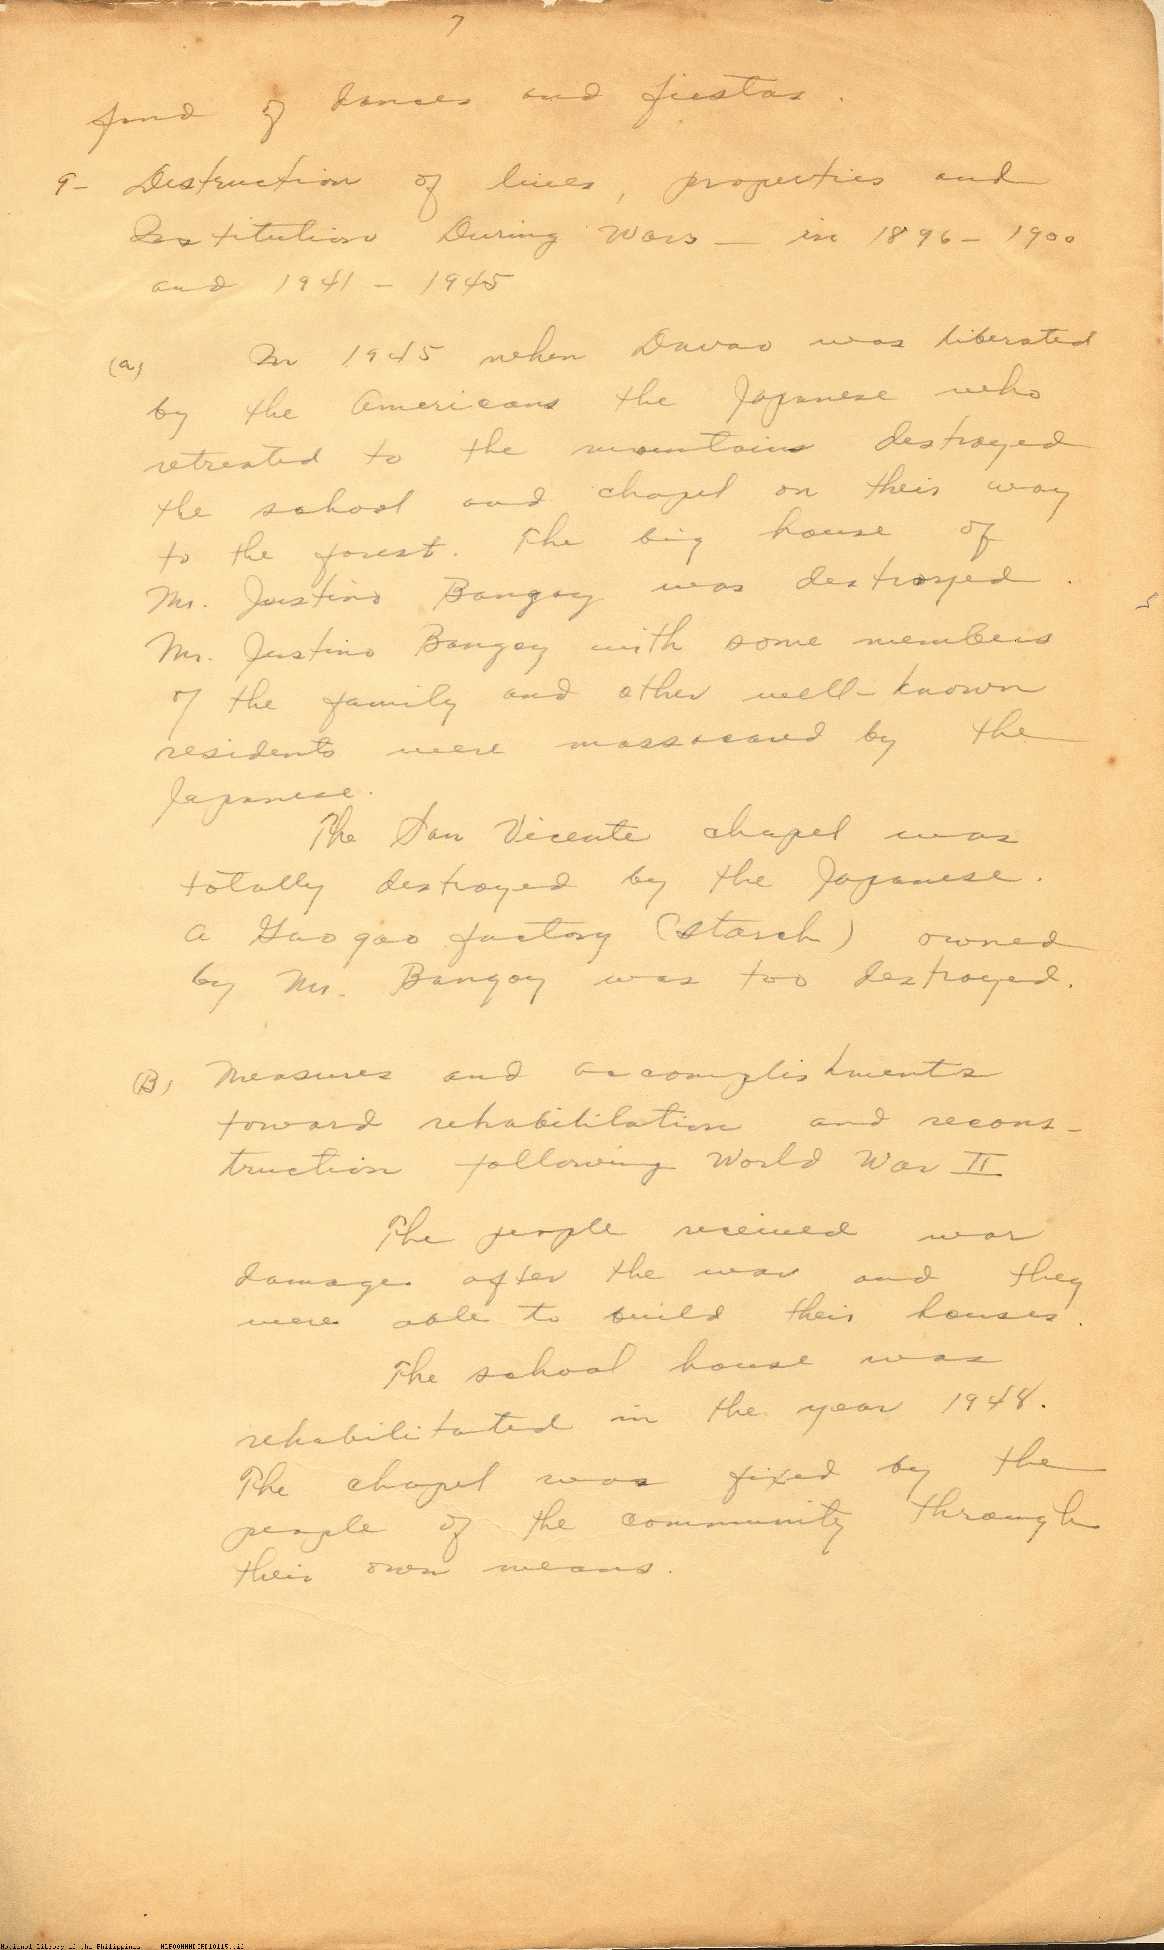 7
fond of dances and fiestas.
9- Destruction of lives, properties and
Institution During Wars — in 1896-1900
and 1941 - 1945
(a) In 1945 when Davao was liberated
by the Americans the Japanese who
retreated to the mountains destroyed
the school and chapel on their way
to the forest. The big house of
Mr. Justino Bangoy was destroyed.
Mr. Justino Bangoy with some members
of the family and other well-known
residents were massacred by the
Japanese.
The San Vicente chapel was
totally destroyed by the Japanese.
A Gaogao factory (starch) owned
by Mr. Bangoy was too destroyed.
(B) Measures and accomplishments
toward rehabilitation and recons-
truction following World War II
The people received war
damages after the war and they
were able to build their houses.
The school house was
rehabilitated in the year 1948.
The chapel was fixed by the
people of the community through
their own means.
National Library of the Philippines